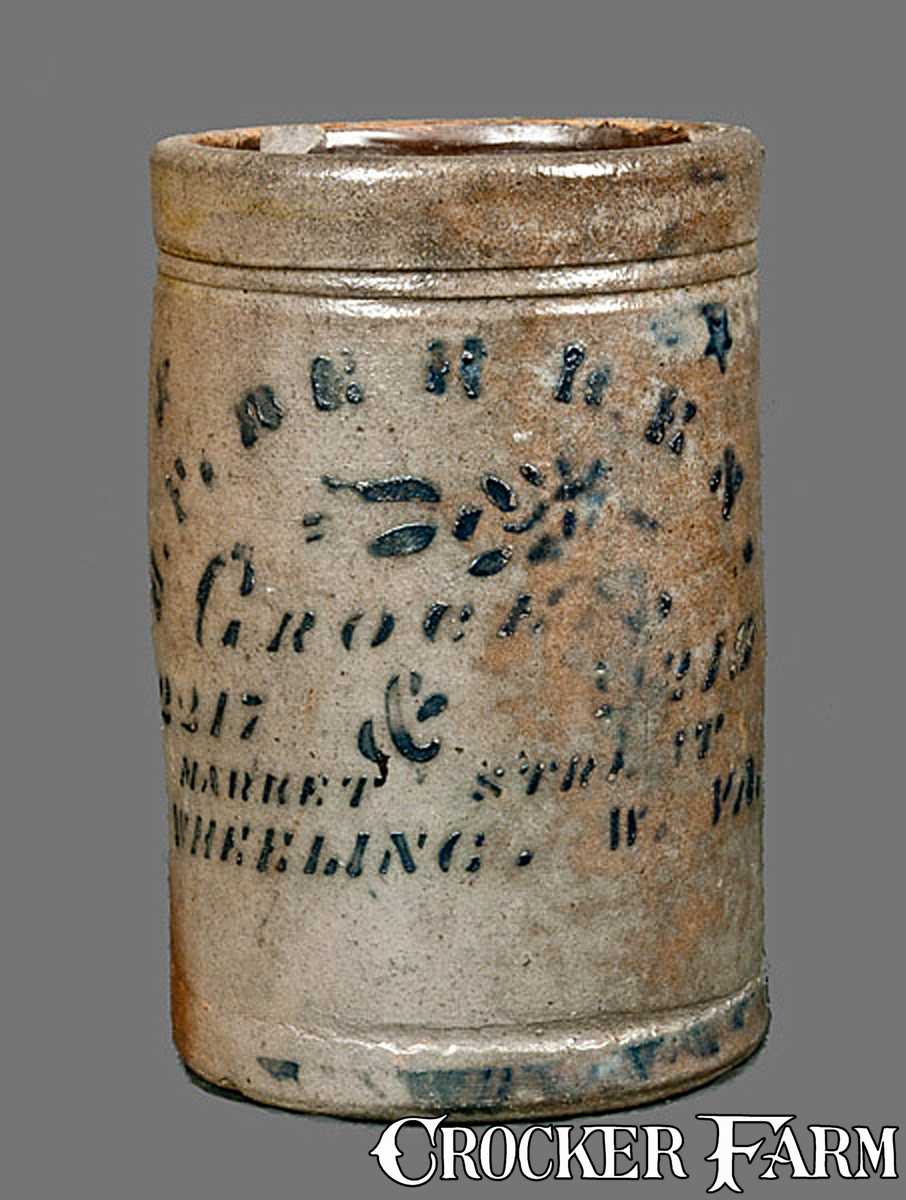 F. BEHRE
GROCER
2217 & 219
MARKET STREET
WHEELING. W. VA.
CROCKER FARM